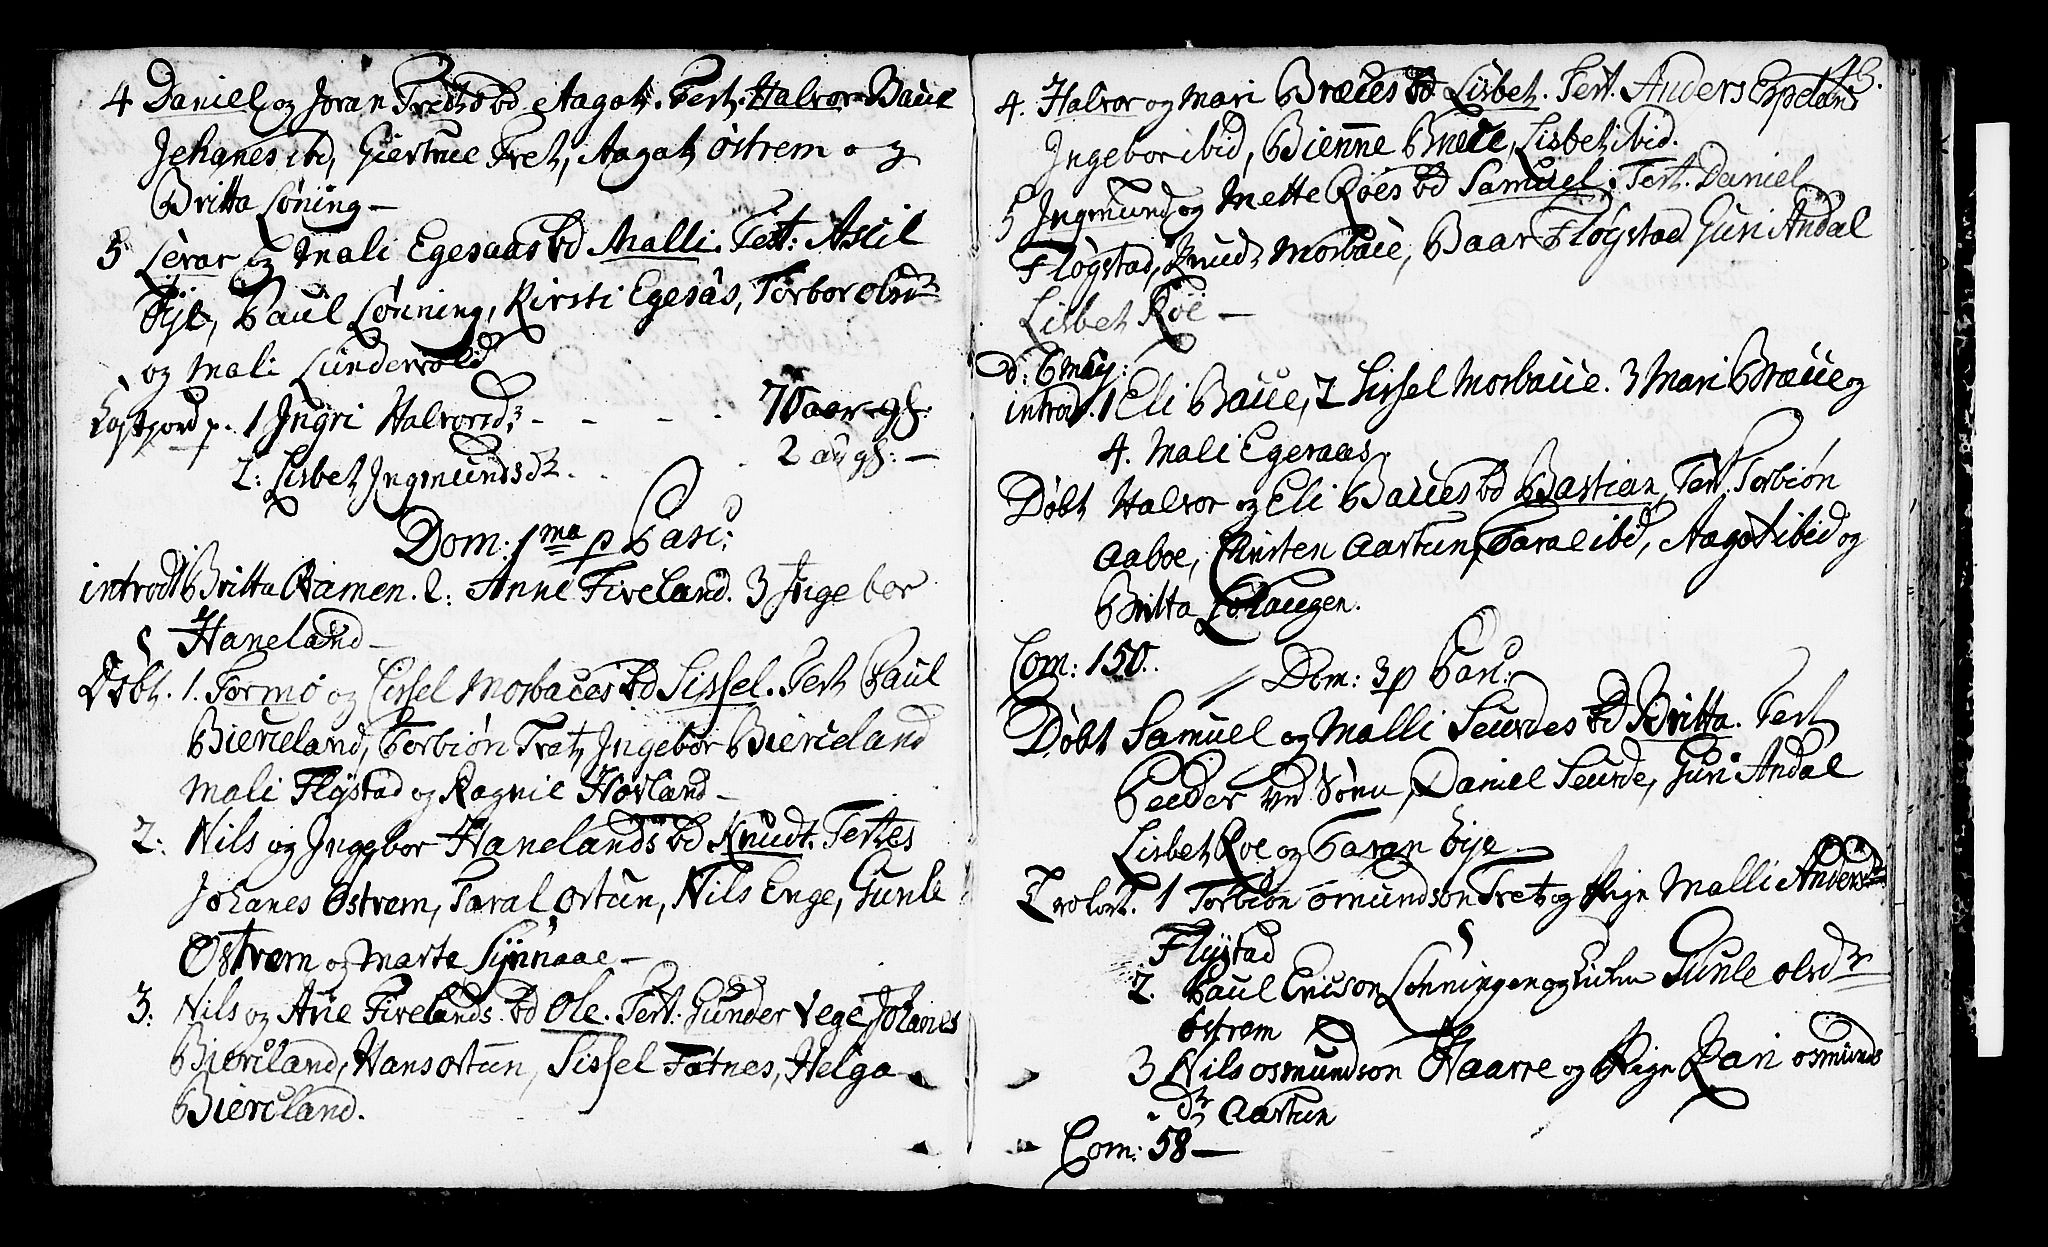 4 Daniel og Joran Tretz bd Aagot. Test. Halvor Baue
Johanes ibd, Giertrue Tret, Aagot Østrem og
Britta Løning —
5 Levar og Mali Egesaas bd Malli. Test: Ascil
Øÿe, Paul Lønning, Kirsti Egesås, Torbor olsdr
og Mali Lundevold
Kastjord p. 1 Ingri Halvorsdr - - - - 70 aar gl:
2: Lisbet Ingmundsdr. . . . 2 au gl: —
Dom: 1ma p Pasc:
introd 1 Britta Ramen. 2: Anne Fiveland. 3 Ingebor
Haneland —
Døbt. 1. Tormo og Cissel Mosbaues bd Sissel. Test Paul
Biercland, Torbiøn Tretz, Ingebor Biercland
Mali Flÿstad og Ragnil Hovland —
2: Nils og Ingebor Hanelands bd Knudt. Testes
Johanes Østrem, Taral Ostun, Nils Enge, Gunle
Østrem og Marte Sÿnnaae —
3: Nils og Ane Fivelands bd Ole. Test. Gunder Vege Johanes
Biercland, Hans Ostun, Sissel Fotnes, Helga
Biercland.
43.
4. Halvor og Mari Bræues bd Lisbet. Test. Anders Espeland
Ingebor ibid, Bienne Bræue, Lisbet ibid.
5 Ingmund og Mette Røes bd Samuel. Test. Daniel
Fløgstad, Knud Mosbaue, Baar Fløgstad Guri Andal
Lisbet Røe —
d: 6 Maÿ:
introd. 1 Eli Baue, 2 Sissel Mosbaue. 3 Mari Bræue og
4. Mali Egesaas.
Døbt Halvor og Eli Baues bd Bastian, Test. Torbiøn
Aaboe, Christen Aastun, Taral ibd, Aagot ibid og
Britta Lohaugen.
Com: 150.
Dom: 3 p Pasc:
Døbt Samuel og Malli Seurdes bd Britta. Test
Peeder Daniel Seurde, Guri Andal
Lisbet Roe og Taran Øÿe
Trolov. 1 Torbiøn Omundson Tret og Pige Malli Andersdr
Flÿstad
2. Paul Ericson Lønningen og Gunle olsdr
Østrem
3 Nils Osmundson Haarre og Pige Kari Osmunds
dr Aastun
Com: 58 —